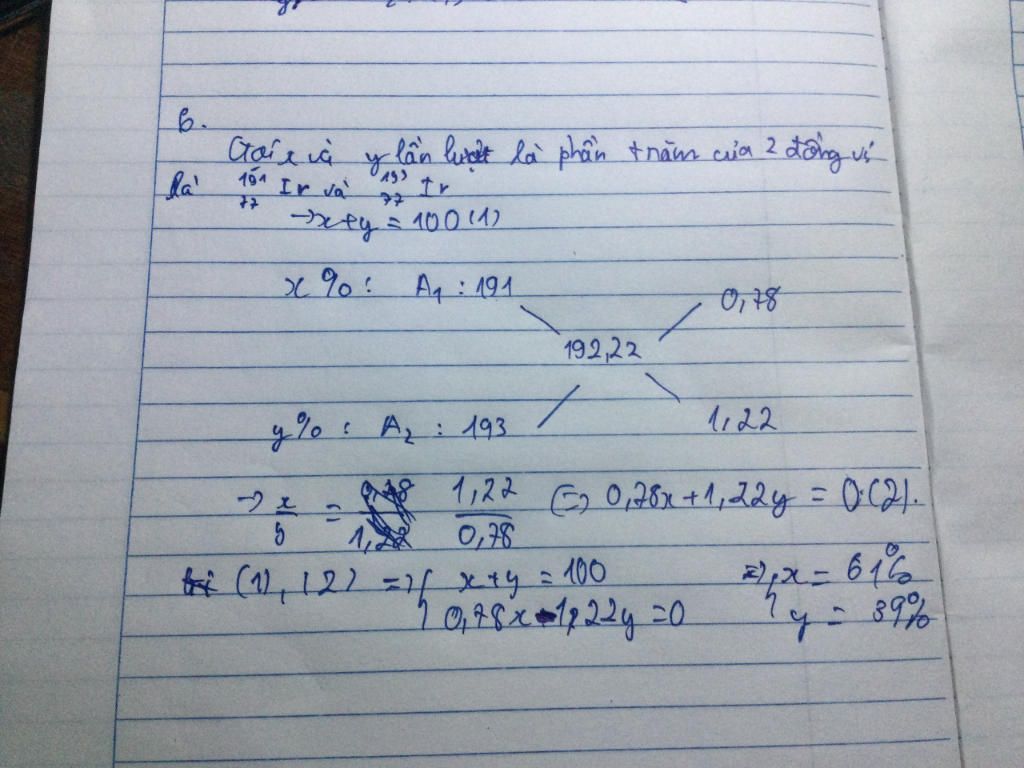 6.
Gọi x và y lần lượt là phần trăm của 2 đồng vị
là ¹⁹¹₇₇ Ir và ¹⁹³₇₇ Ir
→ x + y = 100 (1)
x % : A₁ : 191
0,78
192,22
y% : A₂ : 193
1,22
→ x/y = 1,22/0,78 (=) 0,78x + 1,22y = 0 (2).
(1), (2) => { x + y = 100 => { x = 61%
0,78x - 1,22y = 0 y = 39%